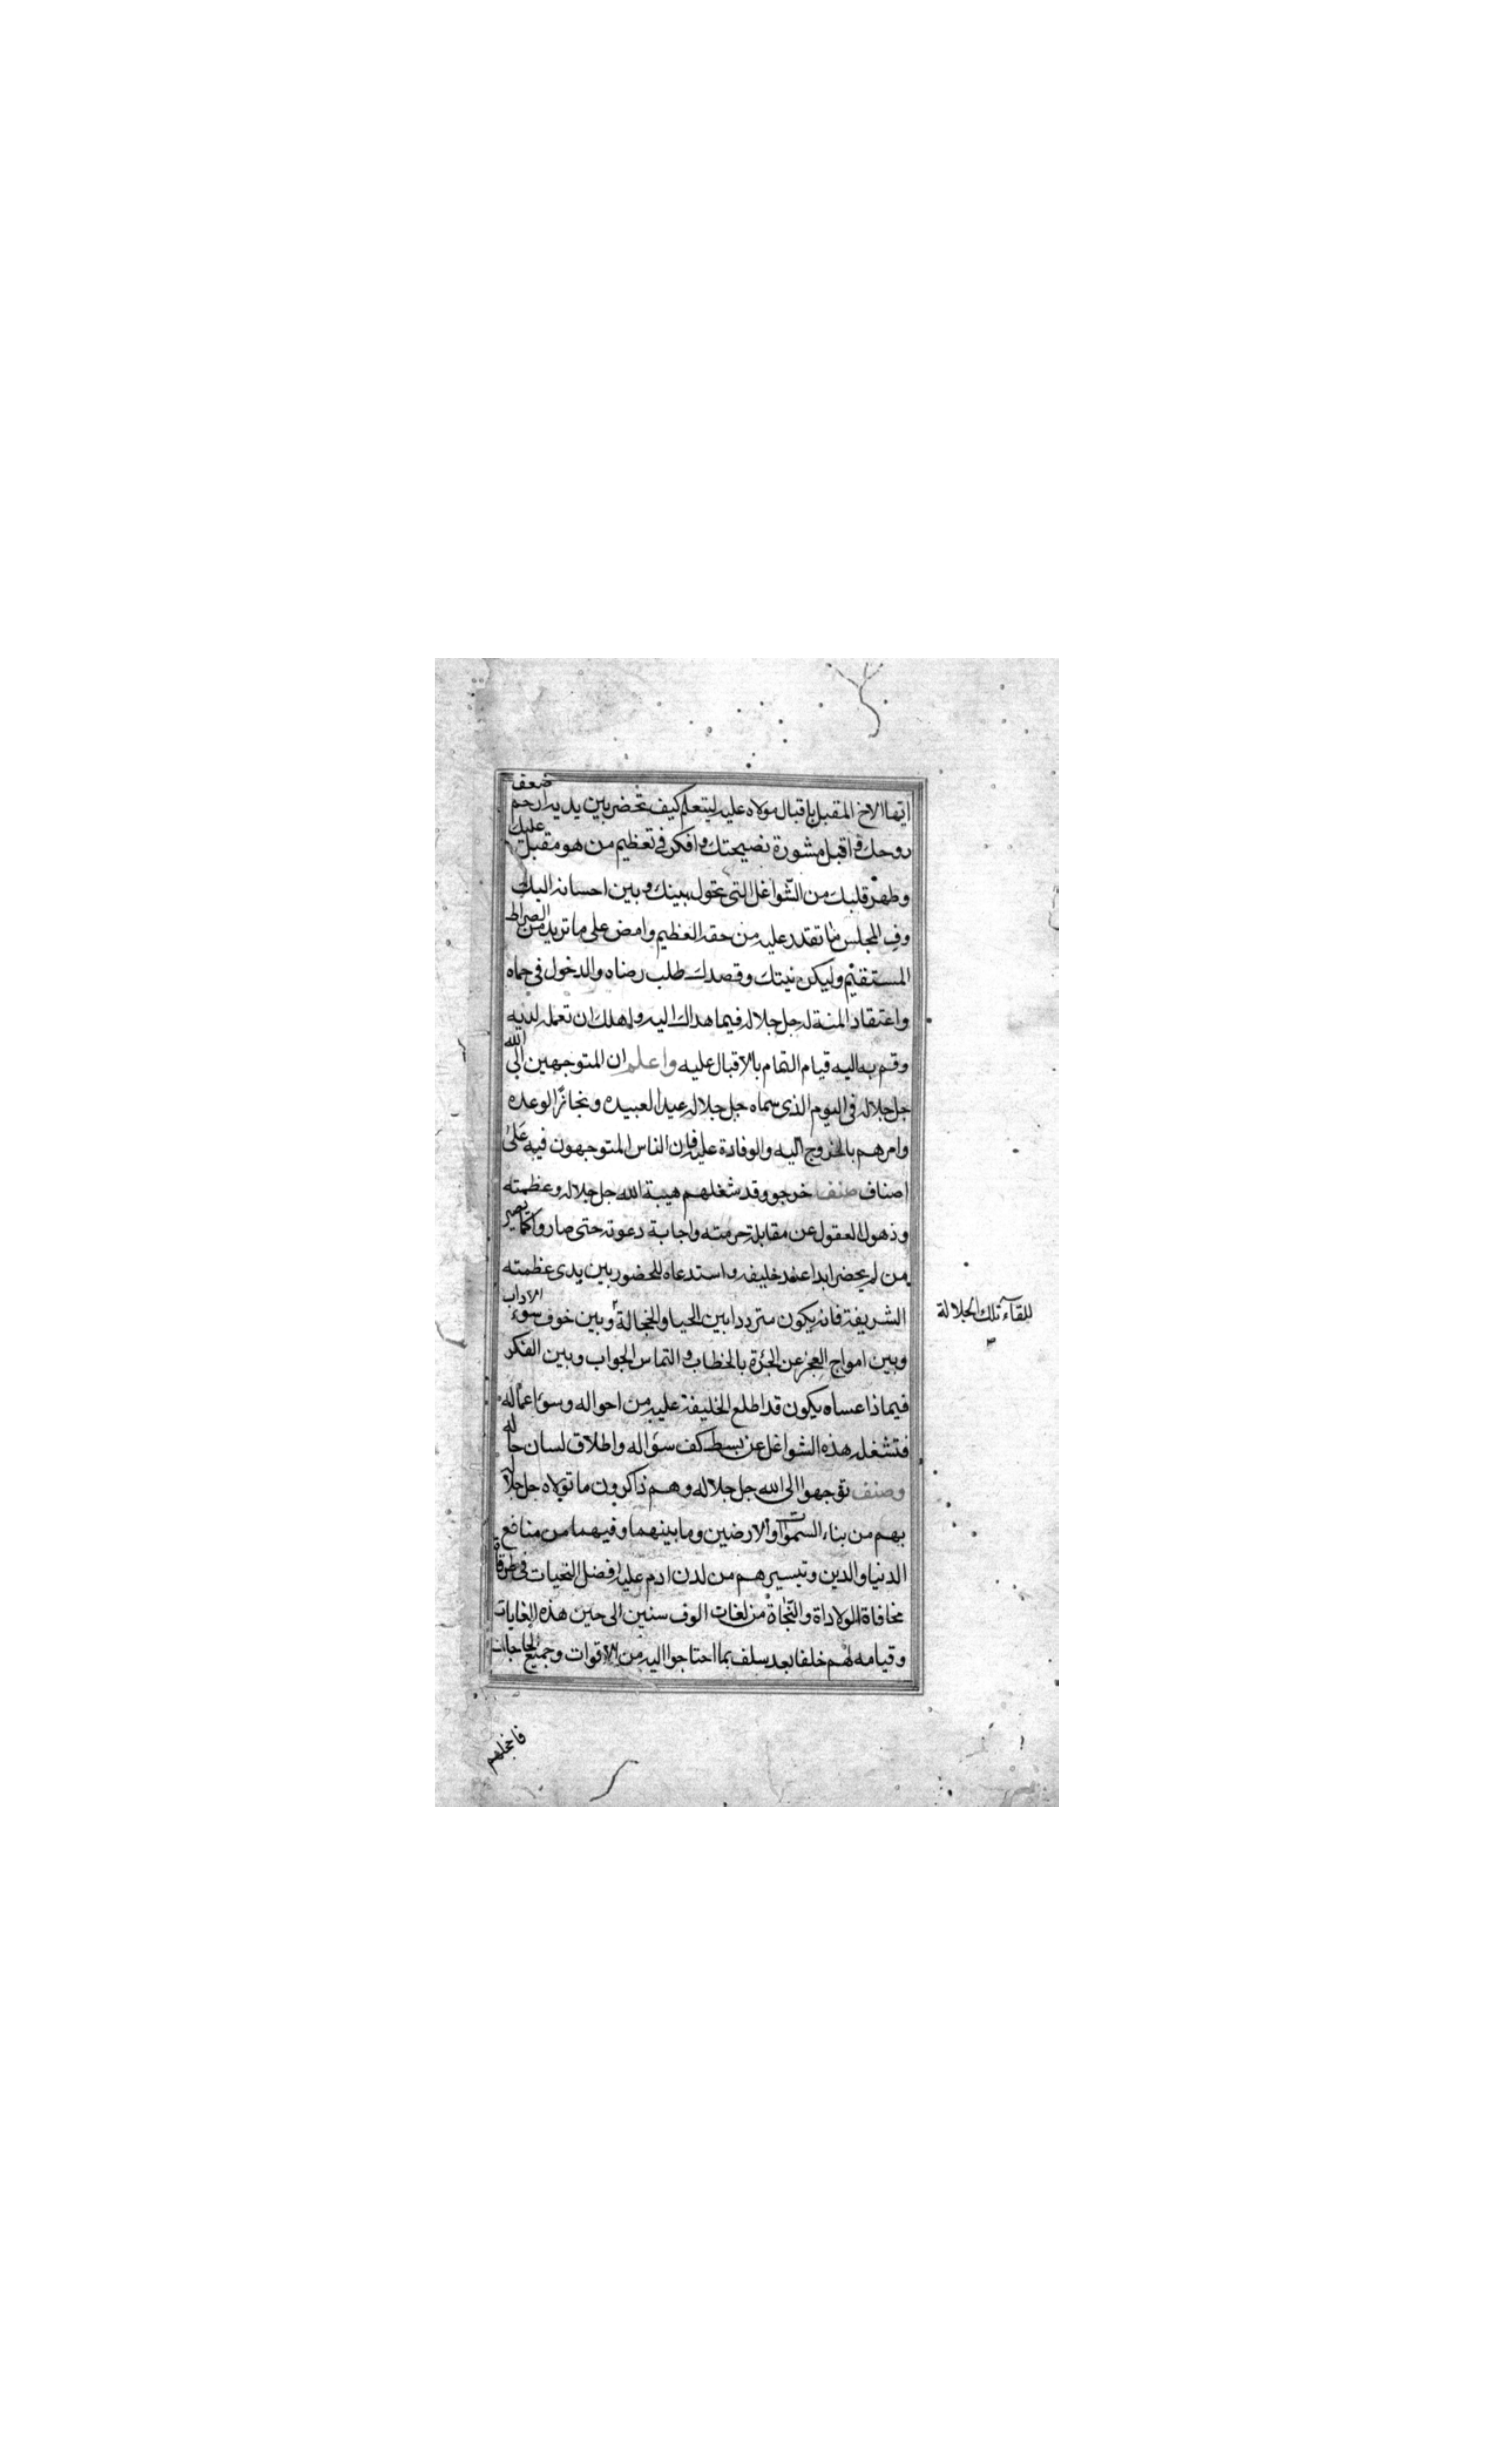 ايها الاخ المقبل باقبال مولاه عليه ليتعلم كيف تحضر بين يديه ارحم ضعف
روحك و اقبل مشورة نصيحتك و افكر في تعظيم من هو مقبل عليك
وطهر قلبك من الشواغل التي تحول بينك و بين احسانه اليك
وف المجلس ما تقدر عليه من حقه العظيم وامض على ما تريد من الصراط
المستقيم وليكن نيتك وقصدك طلب رضاه والدخول في حماه
واعتقاد المنة له جل جلاله فيما هداك اليه و اهلك ان تعمله لديه
وقم به اليه قيام التمام بالاقبال عليه واعلم ان المتوجهين الى الله
جل جلاله في اليوم الذي سماه جل جلاله عيدا لعبيده ونجازا لوعده
وامرهم بالخروج اليه والوفادة عليه فان الناس المتوجهون فيه على
اصناف صنف خرجو وقد شغلهم هيبة الله جل جلاله وعظمته
وذهول العقول عن مقابلة حرمته واجابة دعوته حتى صاروا كما يصير
من لم يحضر ابدا عند خليفه و استدعاه للحضور بين يدى عظمته
الشريفة فانه يكون مترددا بين الحيا والخجالة وبين خوف سوء الاداب
للقاء تلك الجلالة
وبين امواج العجز عن الجرئة بالخطاب و التماس الجواب وبين الفكر
فيما ذا عساه يكون قد اطلع الخليفة عليه من احواله وسوء اعماله
فتشغله هذه الشواغل عن بسط كف سؤاله واطلاق لسان حاله
وصنف توجهوا الى الله جل جلاله وهم ذاكرون ما تولاه جل جلاله
بهم من بناء السموات والارضين وما بينهما وفيهما من منافع
الدنيا والدين وتيسيرهم من لدن ادم عليه افضل التحيات في طرقات
مخافاة الولاداة والنجاة من لغات الوف سنين الى حين هذه الغايات
وقيامه لهم خلفا بعد سلف بما احتاجوا اليه من الاقوات وجميع الحاجات